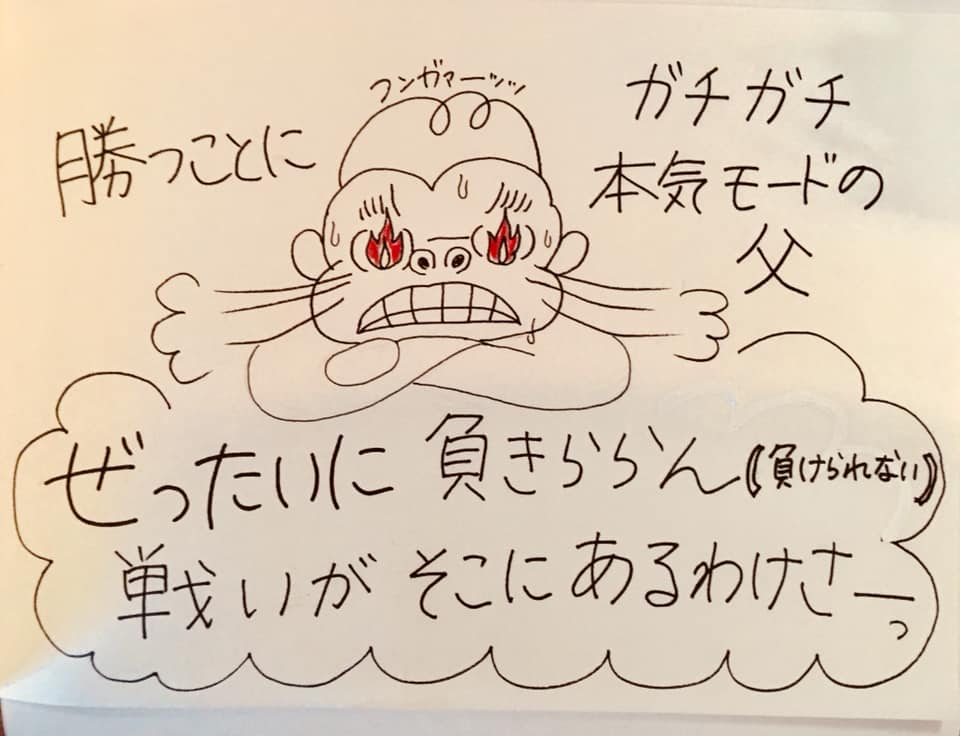 フンガァーッッ
勝つことに
ガチガチ
本気モードの
父
ぜったいに 負きららん(負けられない)
戦いが そこにあるわけさーっ